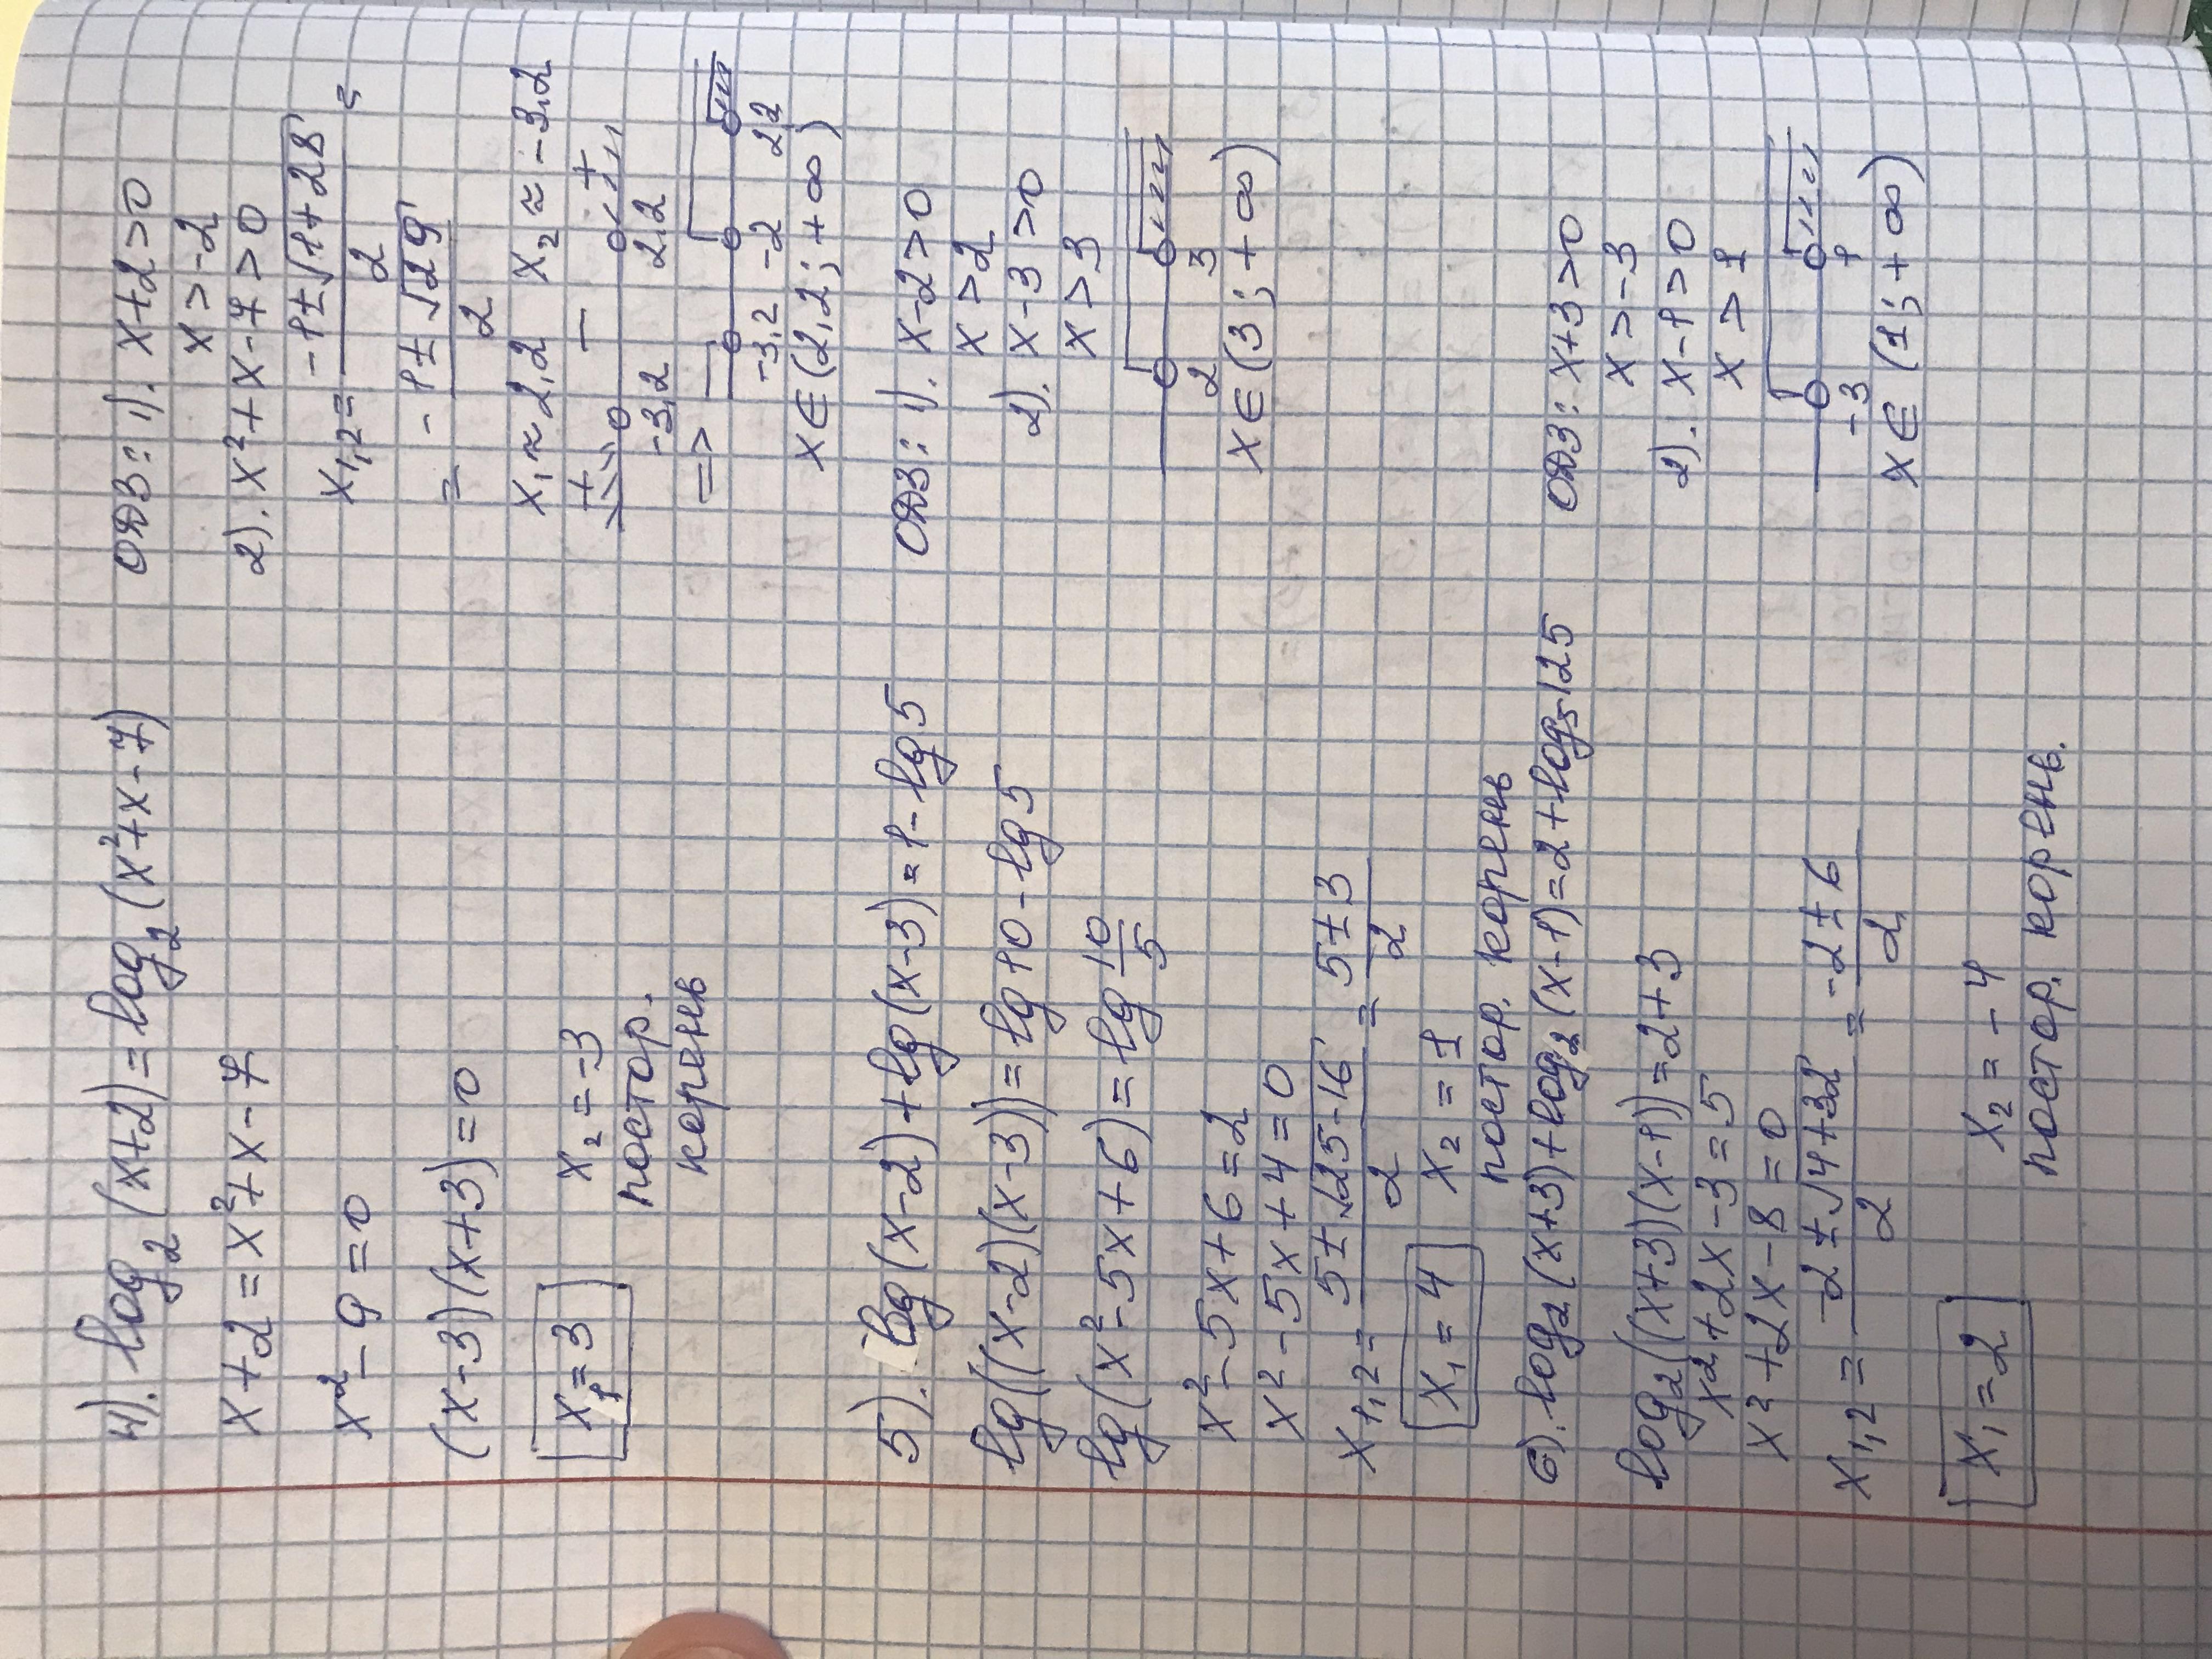 4). log₂(x+2)=log₂(x²+x-7)
x+2=x²+x-7
x²-9=0
(x-3)(x+3)=0
x₁=3 x₂=-3
постор.
корень
ОДЗ: 1). x+2>0
x>-2
2). x²+x-7>0
x₁,₂= (-1±√1+28)/2 =
= (-1±√29)/2
x₁≈2,2 x₂≈-3,2
+ - +
-3,2 2,2
=>
-3,2 -2 2,2
x∈(2,2;+∞)
5). lg(x-2)+lg(x-3)=1-lg5
lg((x-2)(x-3))=lg10-lg5
lg(x²-5x+6)=lg 10/5
x²-5x+6=2
x²-5x+4=0
x₁,₂= (5±√25-16)/2 = (5±3)/2
x₁=4 x₂=1
постор. корень
ОДЗ: 1). x-2>0
x>2
2). x-3>0
x>3
2 3
x∈(3;+∞)
6). log₂(x+3)+log₂(x-1)=2+log₅125
log₂((x+3)(x-1))=2+3
x²+2x-3=5
x²+2x-8=0
x₁,₂= (-2±√4+32)/2 = (-2±6)/2
x₁=2 x₂=-4
постор. корень.
ОДЗ: x+3>0
x>-3
2). x-1>0
x>1
-3 1
x∈(1;+∞)